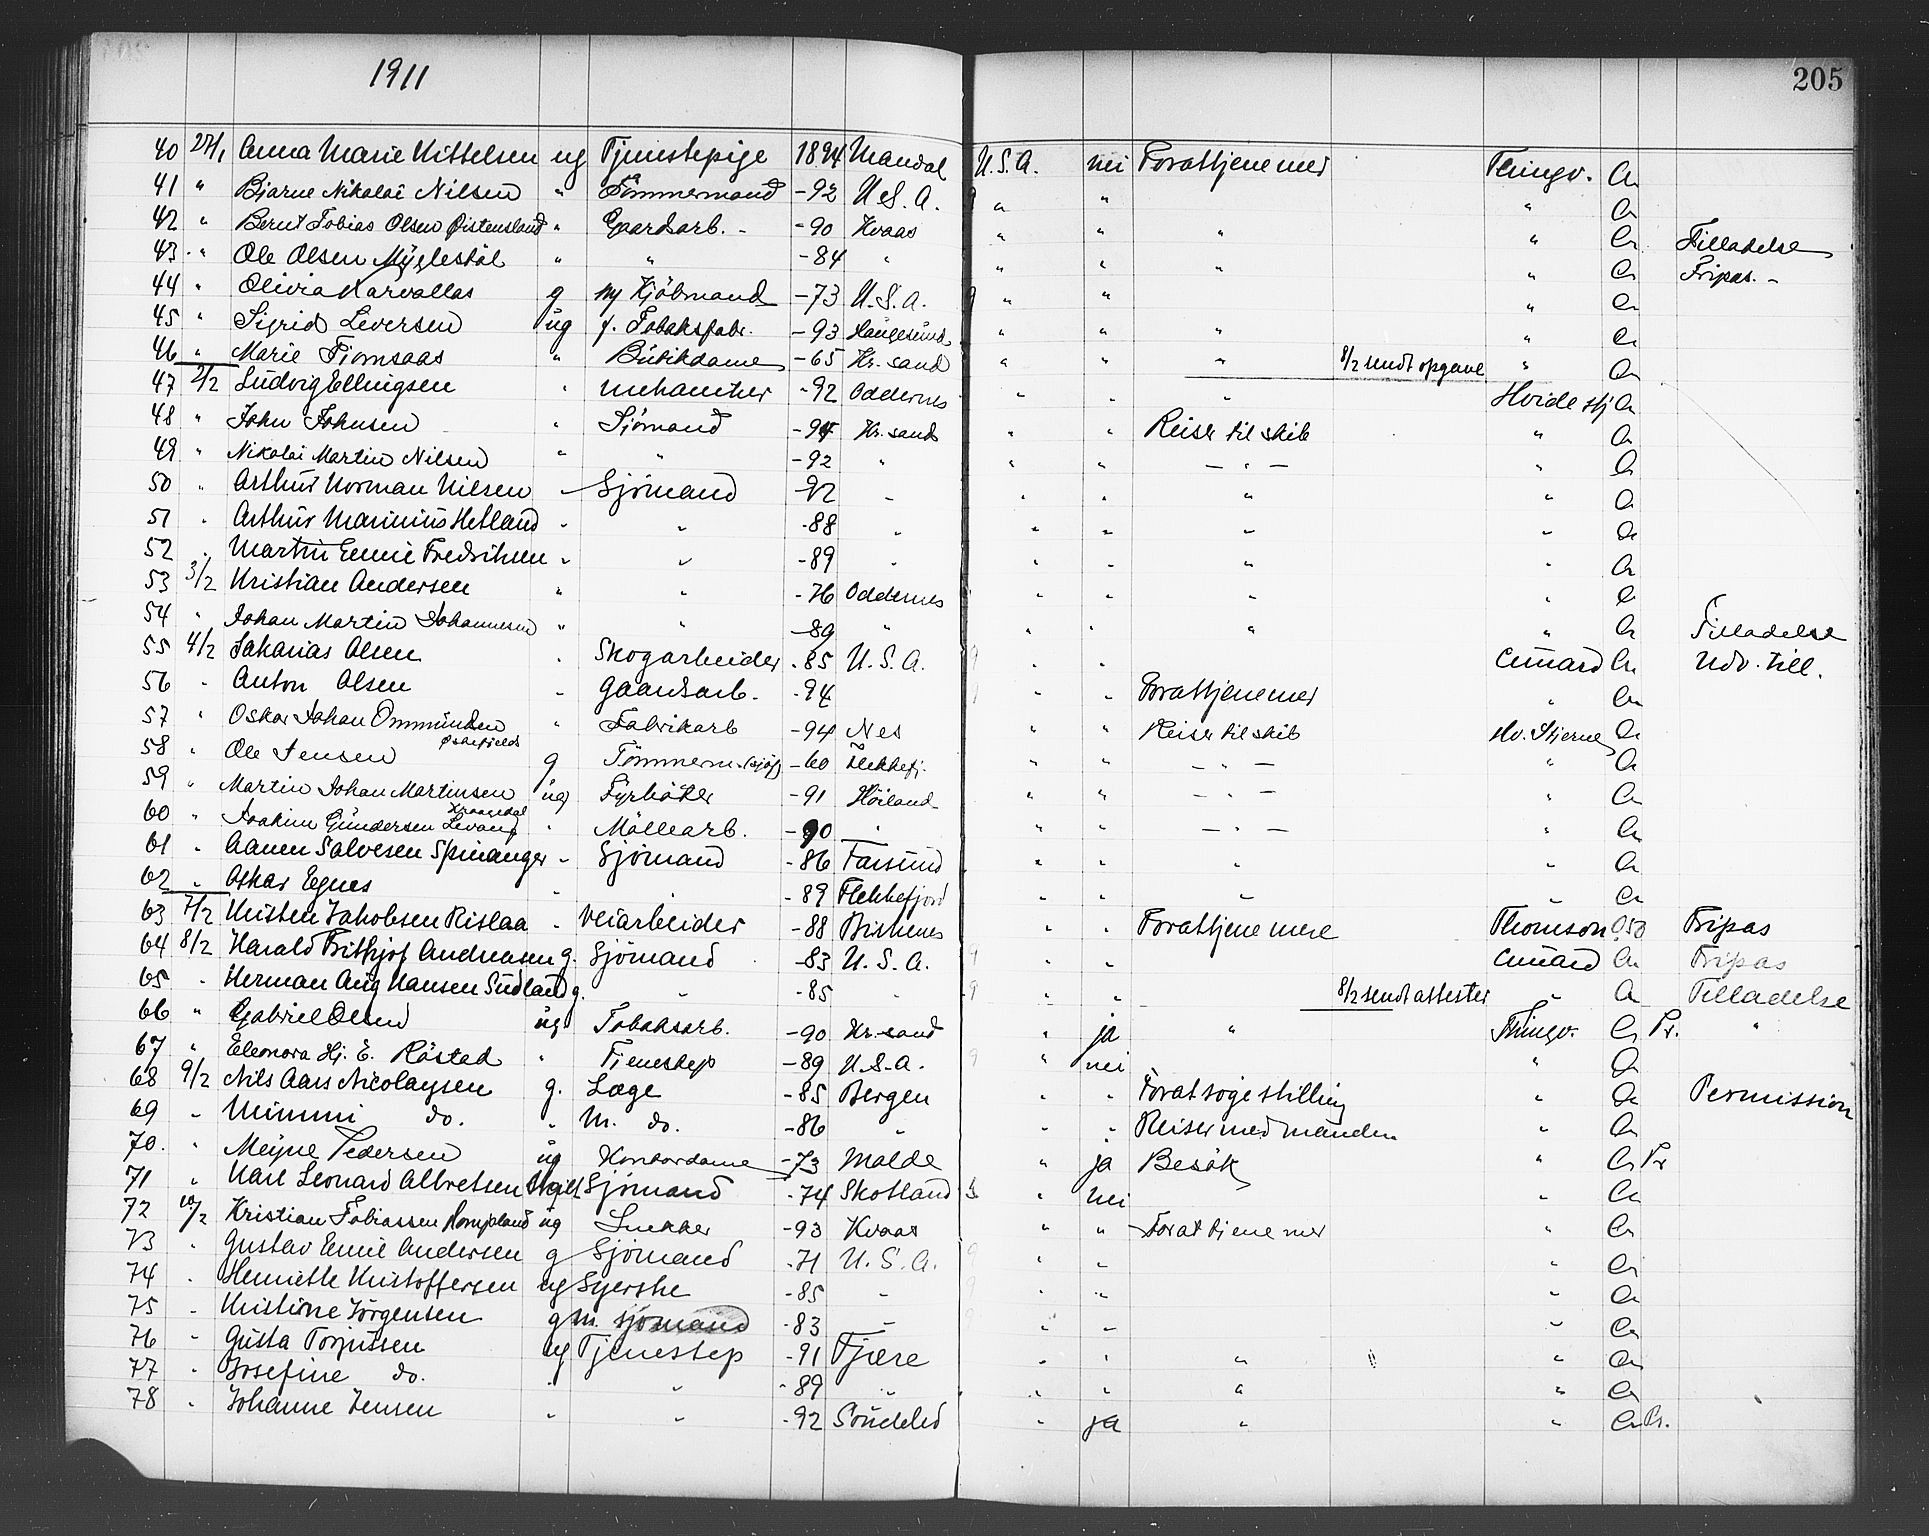 1911
205
40 27/1 Anna Marie Kittelsen ug Tjenestepige 1894 Mandal U.S.A. nei For at tjene mer Thingv. Cr
41 " Bjarne Nikolai Nilsen " Tömmermand -92 U.S.A. 9 " " " Cr
42 " Bernt Tobias Olsen Øistensland " Gaardsarb. - -90 Kvaas " " " " Cr Tilladelse
43 " Ole Olsen Myglestöl " " -84 " " " " " Cr Fripas. -
44 " Olivia Karvallas g m/ Kjöbmand -73 U.S.A. 9 " " " Cr
45 " Sigrid Seversen ug f. Tobaksfabr. -93 Haugesund " " " " Cr
46 " Marie Fjomsaas " Butikdame -65 Kr. sand " " " 8/2 sendt opgave " Cr
47 2/2 Ludvig Ellingsen " mekaniker -92 Oddernes " " " Hvide stj Cr
48 " John Johnsen " Sjömand -94 Kr. sand " " Reiser til skib " Cr
49 " Nikolai Martin Nilsen " " -92 " " " - " - " Cr
50 " Arthur Norman Nilsen " Sjömand -92 " " " " " Cr
51 " Arthur Marinius Hetland " " -88 " " " " " Cr
52 " Martin Emil Fredriksen " " -89 " " " " " Cr
53 3/2 Kristian Andersen " " -76 Oddernes " " " " Cr
54 " Johan Martin Johannesen " " -89 " " " " " Cr Tilladelse
55 4/2 Sakarias Olsen " Skogarbeider -85 U.S.A. 9 " " Cunard Cr Udv. till.
56 " Anton Olsen " Gaardsarb. -94 " " For at tjene mer " Cr
57 " Oskar Johan Ommundsen " Fabrikarb -94 Nes " " Reiser til skib Hv. Stjerne Cr
58 " Ole Jensen g Tömmerm. -60 Flekkefj. " " - " - " Cr
59 " Martin Johan Martinsen ug Fyrböter -91 Höiland " " - " - " Cr
60 " Joakim Gundersen " Möllearb. -90 " " " - " - " Cr
61 " Aanen Salvesen Spinanger " Sjömand -86 Farsund " " " " Cr
62 " Oskar Egnes " -89 Flekkefjord " " " " Cr
63 7/2 Kristen Jakobsen Rislaa " Veiarbeider -88 Birkenes " " For at tjene mere Thomson 050 Fripas
64 8/2 Harald Frithjof Andreasen g. Sjömand -83 U.S.A. 9 " " Cunard Cr Fripas
65 " Herman Aug Hansen Sudland g. " -85 " 9 " " 8/2 sendt attester " Cr Tilladelse
66 " Gabriel Olsen ug Tobaksarb. -90 Kr. sand " ja " Thingv. Cr Pr. "
67 " Eleonora Hj. E. Röstad " Tjenestep -89 U.S.A. 9 " nei " Cr
68 9/2 Nils Aars Nicolaysen g. Læge -85 Bergen " " For at söge stilling " Cr Permission
69 " Mimmi do. " M. do. -86 " " " Reiser med manden " Cr
70. " Meyne Pedersen ug Kontordame -73 Molde " ja Besök " Cr Pr
71 " Karl Leonard Albretsen Sjömand -74 Skotland " nei " Cr
72 10/2 Kristian Tobiassen Rompland ug Snekker -93 Kvaas " " For at tjene mer " Cr
73 " Gustav Emil Andersen g Sjömand -71 U.S.A. 9 " " " Cr
74 " Henriette Kristoffersen ug Syerske -85 " 9 " " " Cr
75 " Kristine Jörgensen g m. sjömand -83 " 9 " " " Cr
76 " Gusta Torjussen ug Tjenestep -91 Fjære " " " " Cr
77 " Josefine do. " " -89 " " " " " Cr
78 " Johanne Jensen " " -92 Söndeled " ja " " Cr Pr.